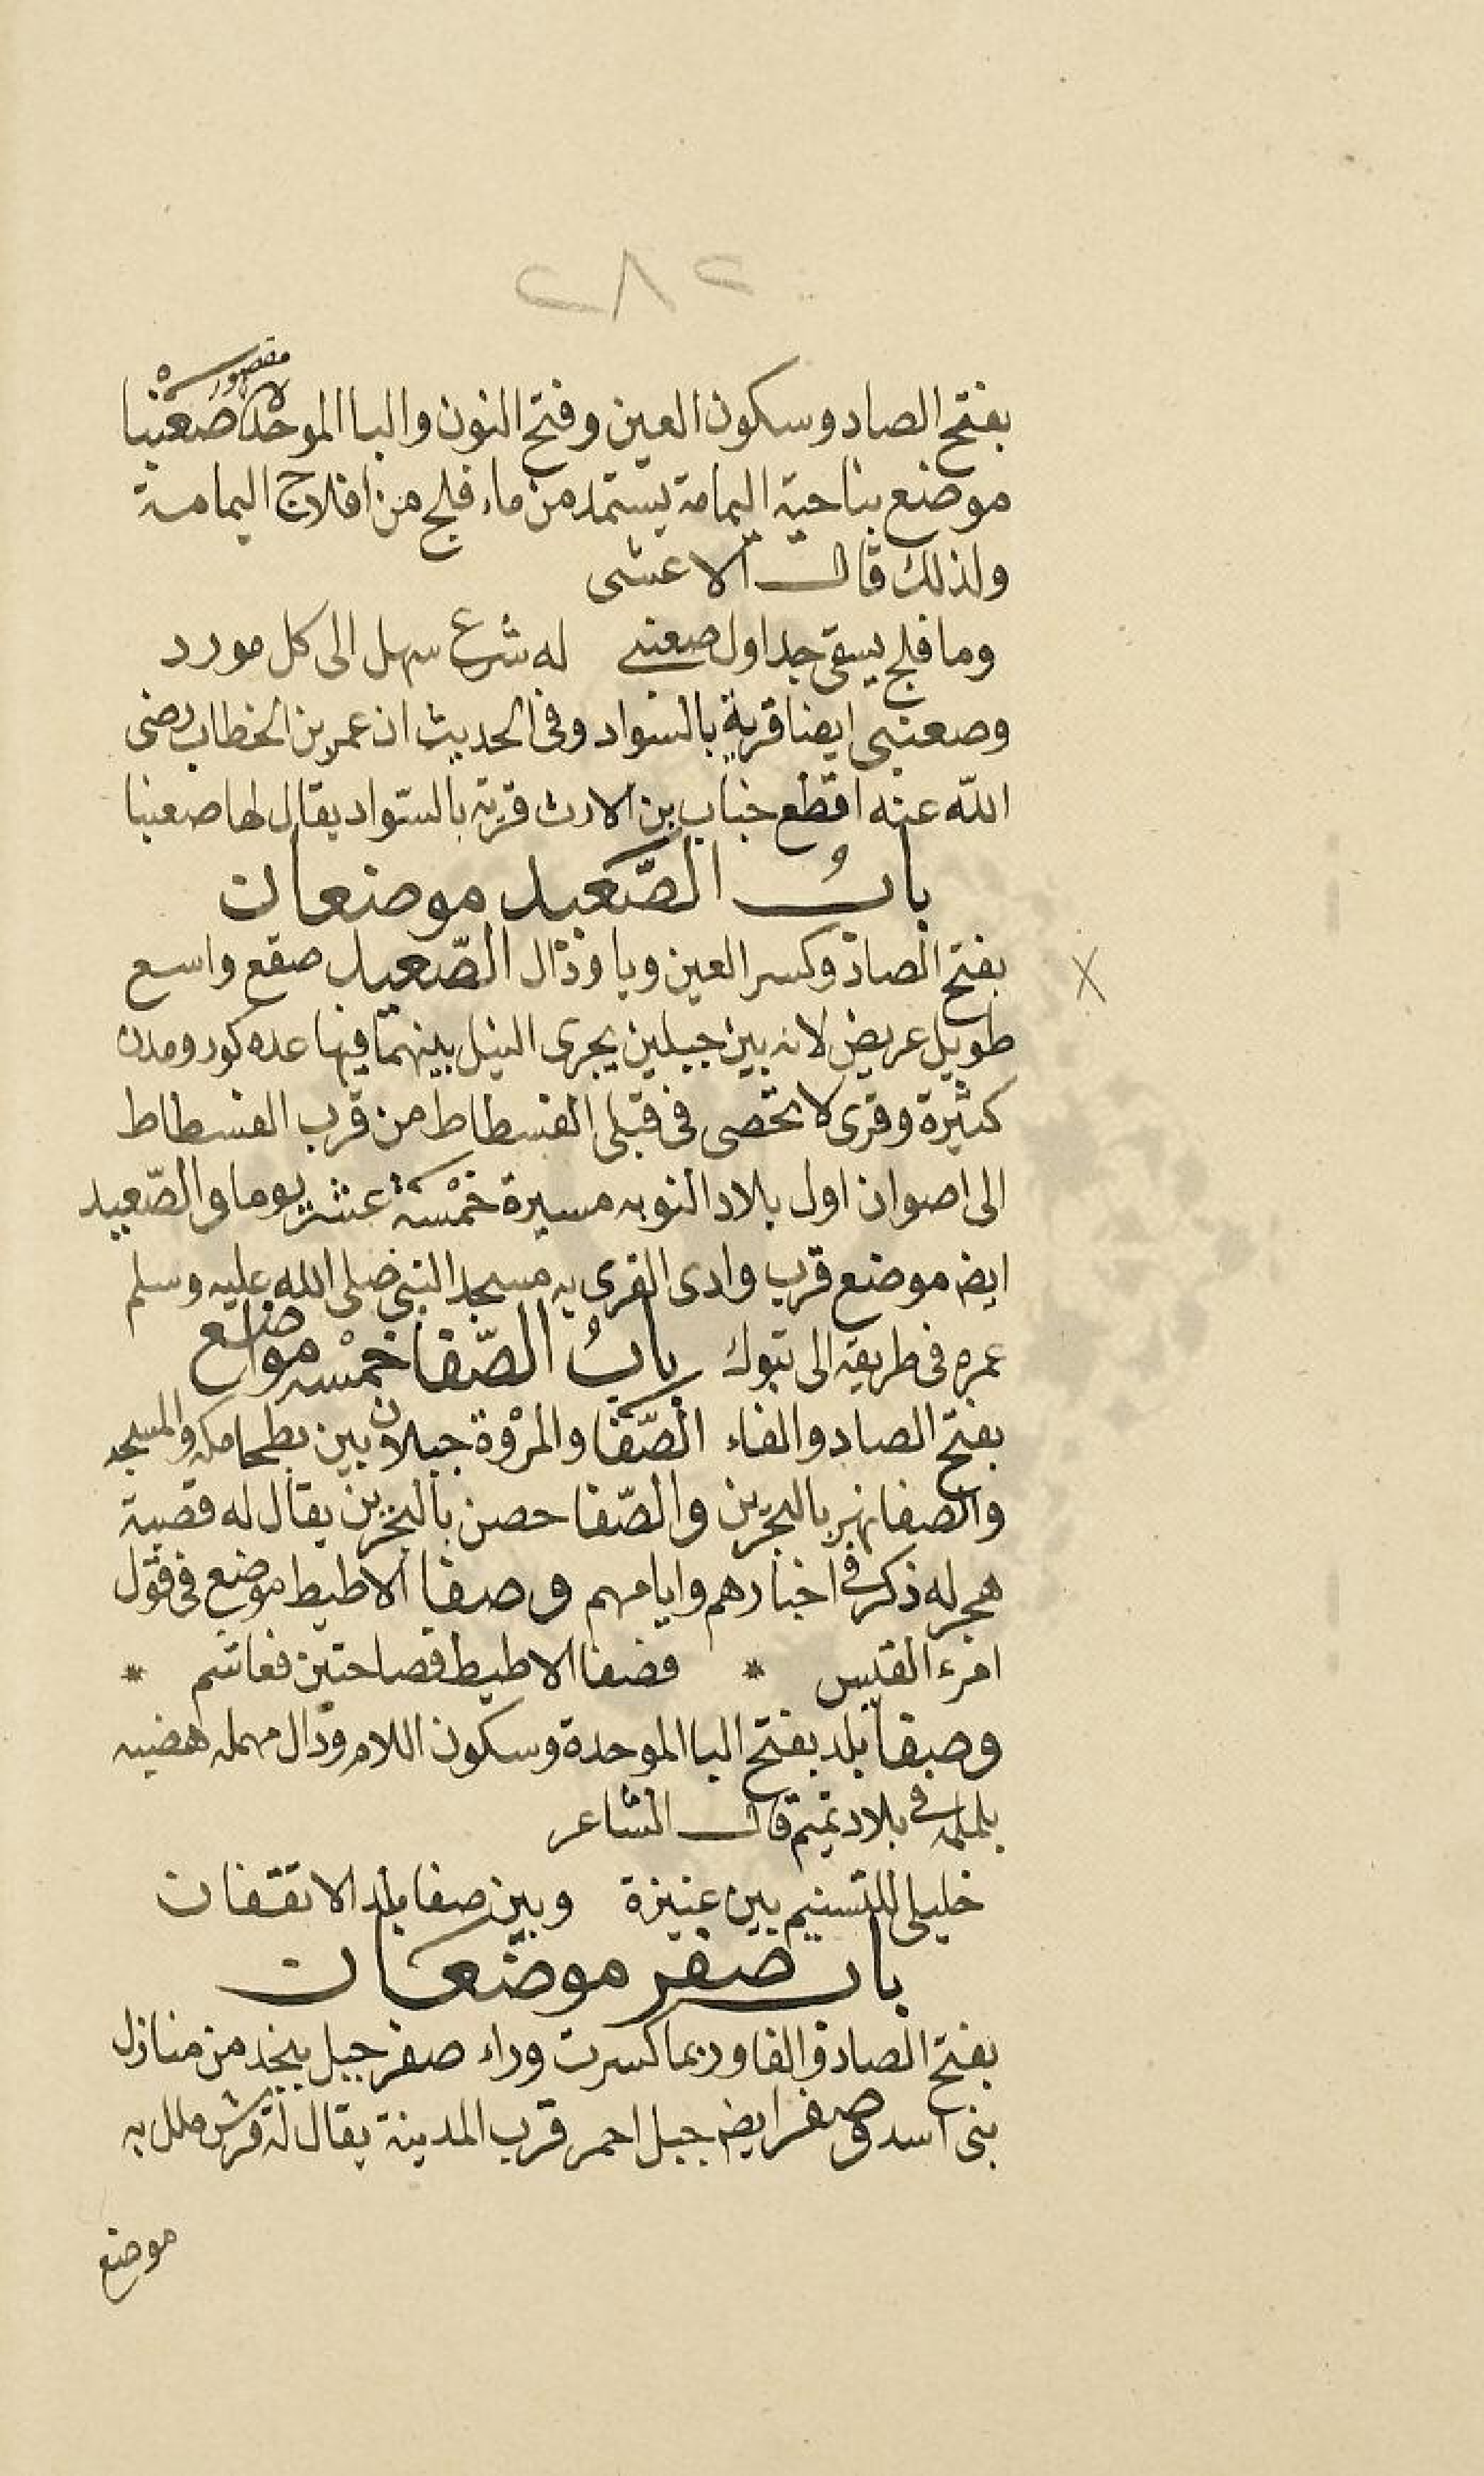 ٢٨٢
مقصور
بفتح الصاد وسكون العين وفتح النون والبا الموحدة صَعْنَبا
موضع بناحية اليمامة يستمد من ماء فلج من افلاج اليمامة
ولذلك قال الاعشى
وما فلج يسقى جداول صعنبى له شرع سهل الى كل مورد
وصعنبى ايضا قرية بالسواد وفى الحديث ان عمر بن الخطاب رضى
الله عنه اقطع خباب بن الارث قرية بالسّواد يقال لها صعنبا
بابُ الصَّعيد موضعان
بفتح الصاد وكسر العين ويا ودال الصّعيد صقع واسع
طويل عريض لانه بين جبلين يجرى النيل بينهما فيها عده كور ومدن
كثيرة وقرى لا تحصى فى قبلى الفسطاط من قرب الفسطاط
الى اصوان اول بلاد النوبه مسيرة خمْسة عشر يوما والصّعيد
ايضا موضع قرب وادى القرى به مسجد النبى صلى الله عليه وسلم
عمره فى طريقه الى تبوك بابُ الصّفا خمْسه مواضع
بفتح الصاد والفاء الصّفَا والمرْوة جبلان بين بطحا مكه والمسجد
والصفا نهر بالبحرين والصّفا حصن بالبحرين يقال له قصبة
هجر له ذكر فى اخبارهم وايامهم وصفا الاطيط موضع فى قول
امرء القيس * فصفا الاطيط فصاحتين فعاشم *
وصفا بلد بفتح البا الموحدة وسكون اللام ودال مهمله هضبه
بلملمه فى بلاد تميم قال الشاعر
خليلى للتسنيم بين عنيزة وبين صفا بلد الا تقفان
باب صفر موضعان
بفتح الصاد والفا وربما كسرت وراء صفر جبل بنجد من منازل
بنى اسد وصفر ايضا جبل احمر قرب المدينة يقال له فرش ملل به
موضع